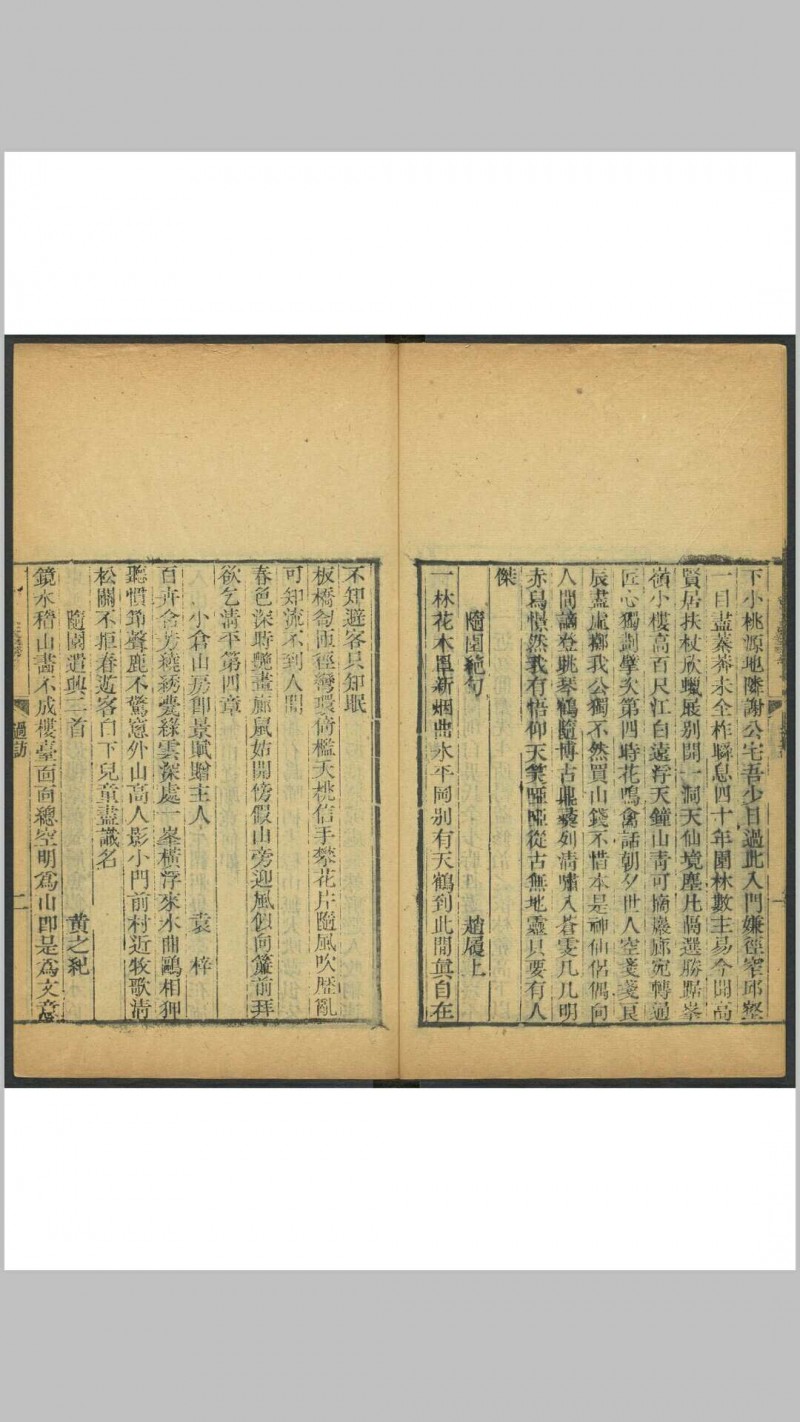 下小桃源地隣謝公宅吾少日過此入門嫌徑窄邱壑
一目盡蓁莽未全柞瞬息四十年園林數主易今聞高
賢居扶杖欣蠟屐別開一洞天仙境塵凡隔選勝踞峯
嶺小樓高百尺江白遠浮天鐘山青可摘巖廊宛轉通
匠心獨劃擘次第四時花鳴禽話朝夕世人空戔戔良
辰盡虛擲我公獨不然買山錢不惜本是神仙侶偶向
人間謫登眺琴鶴隨博古鼎彝列清嘯入蒼雯几几明
赤舄憬然我有悟仰天笑啞啞從古無地靈具要有人
傑
隨園絶句 趙履上
一林花木罩新烟曲水平岡別有天鶴到此間眞自在
不知避客只知眠
板橋匌匝徑灣環倚檻夭桃信手攀花片隨風吹歷亂
可知流不到人間
春色深時艷畫廊鼠姑開傍假山旁迎風似向簾前拜
欲乞清平第四章
小倉山房卽景賦贈主人 袁梓
百卉含芳繞綉甍綠雲深處一峯橫浮來水曲鷗相狎
聽慣節聲鹿不驚窻外山高人影小門前村近牧歌清
松關不拒春遊客白下兒童盡識名
隨園遣興二首 黄之紀
鏡水稽山畵不成樓臺面面總空明爲山卽是爲文章
過訪
二